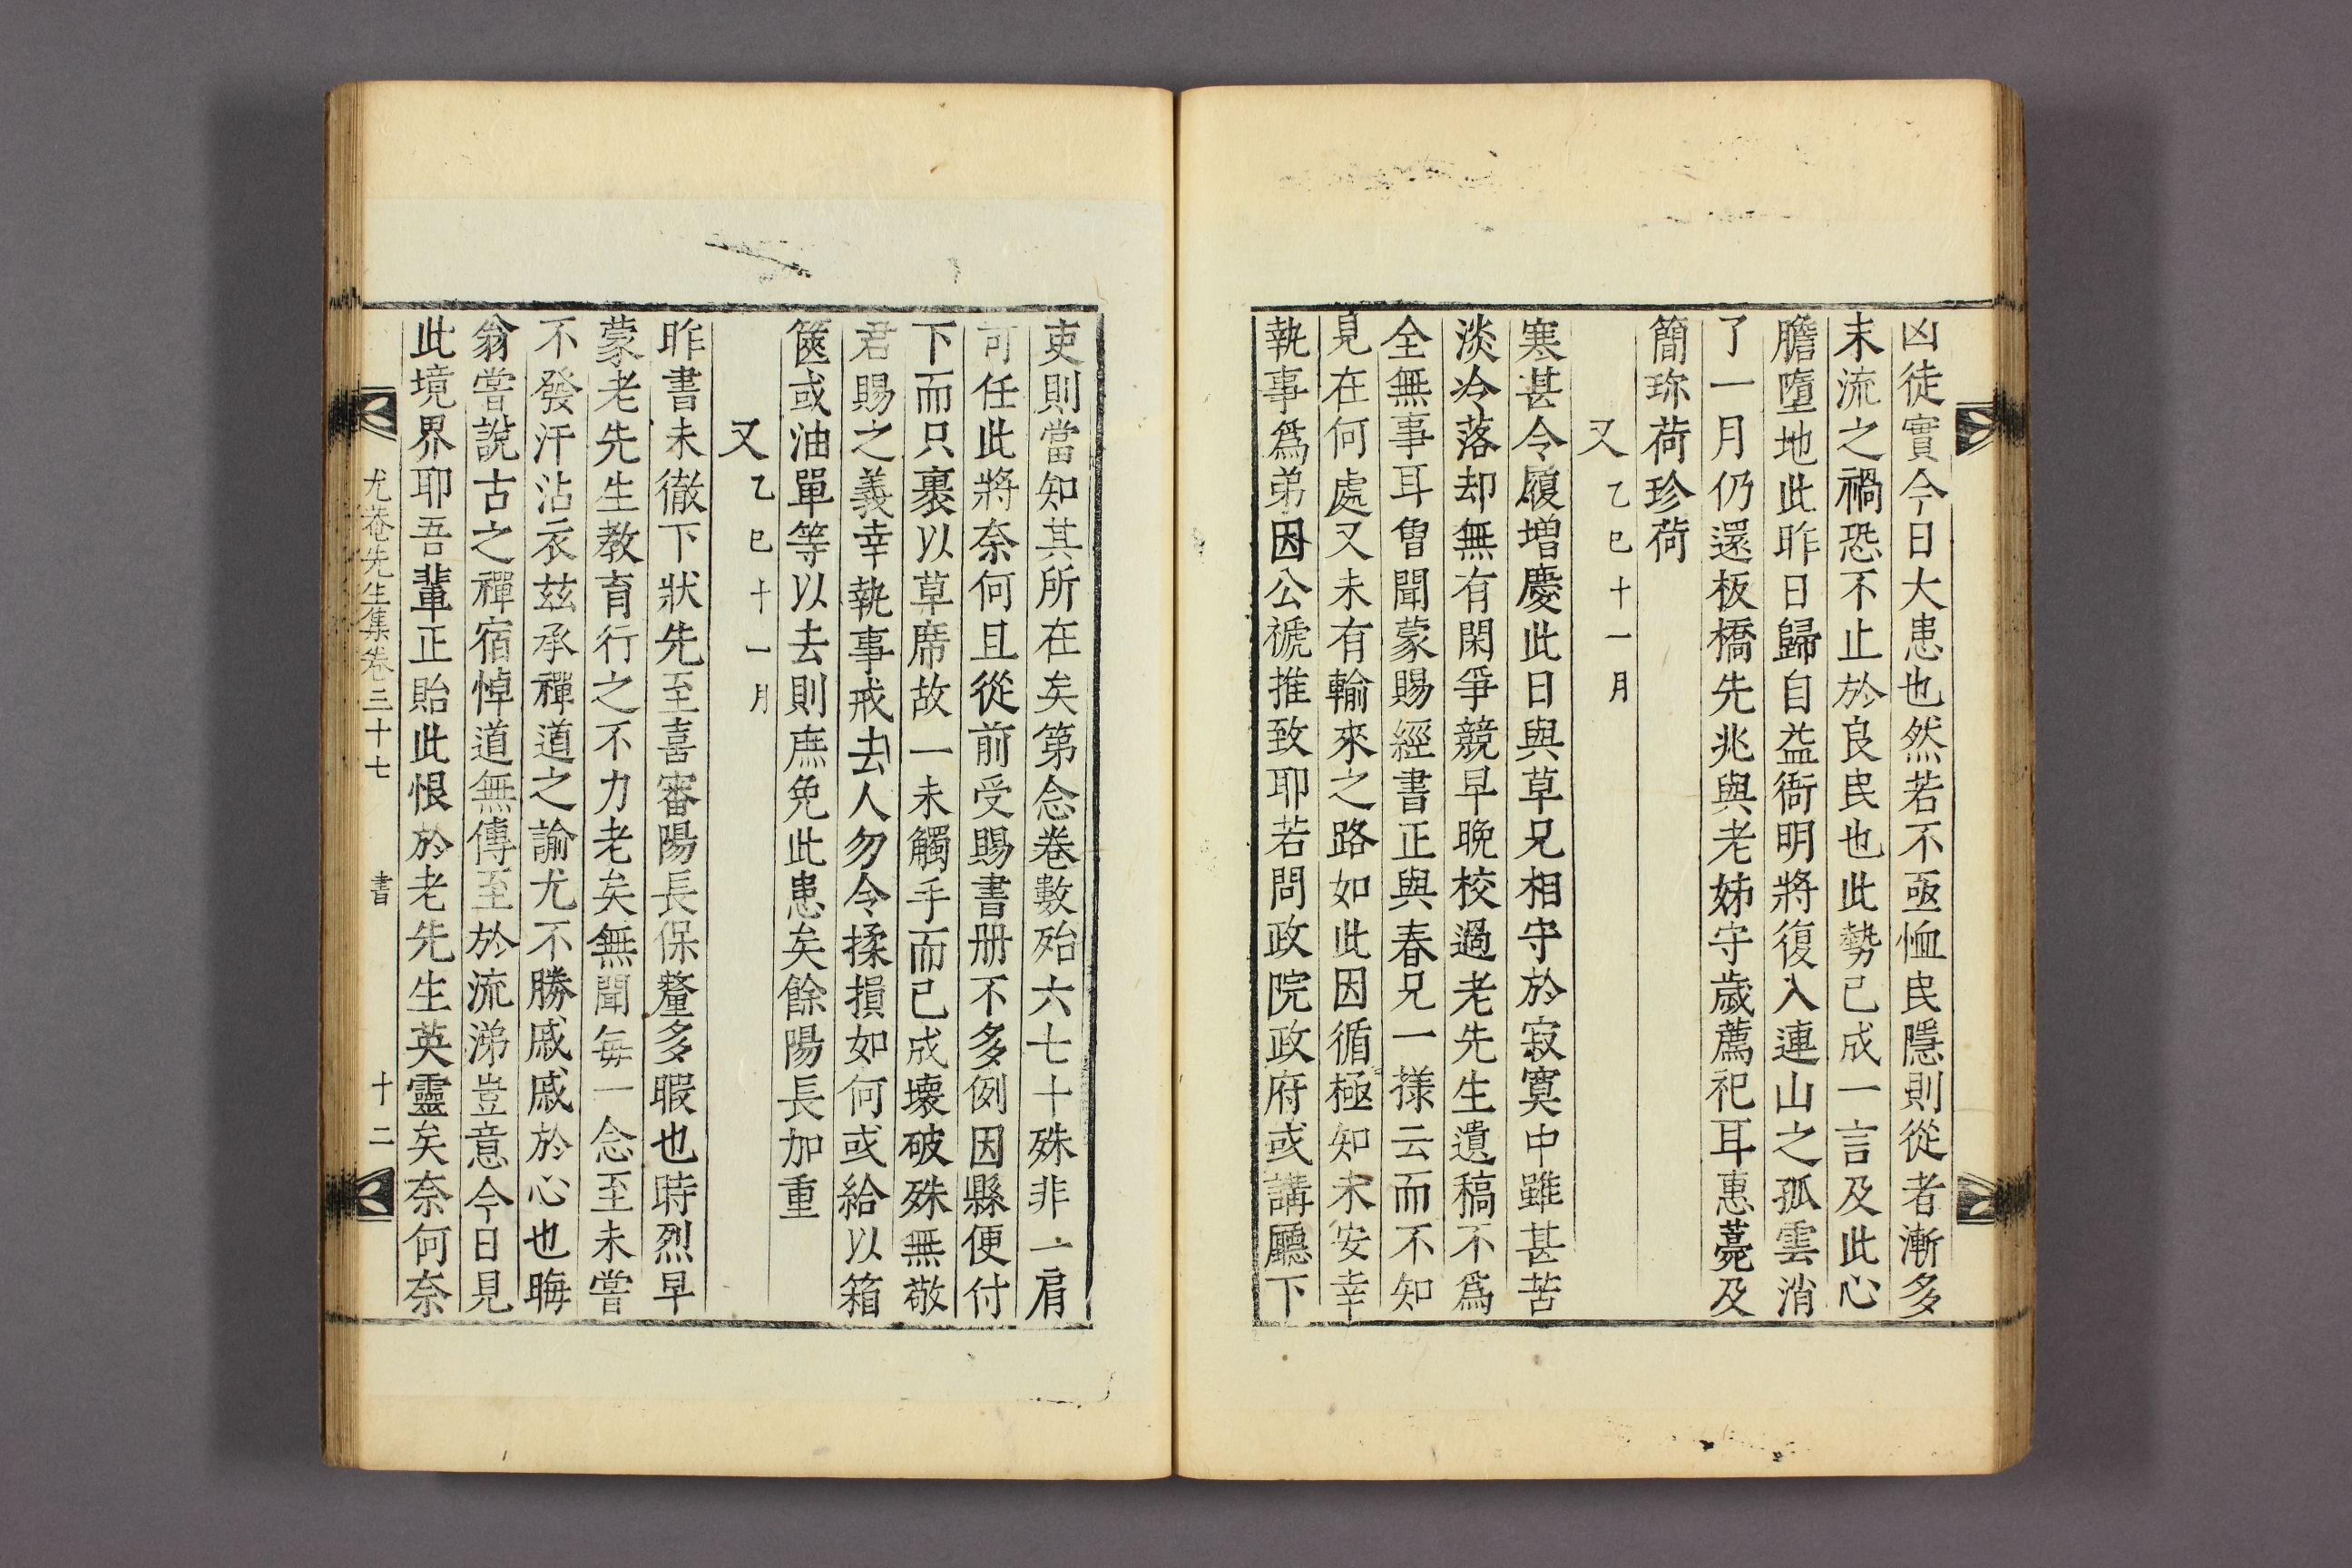 凶徒實今日大患也然若不亟恤民隱則從者漸多
末流之禍恐不止於良民也此勢已成一言及此心
膽墮地此昨日歸自益衙明將復入連山之孤雲消
了一月仍還板橋先兆與老姊守歲薦祀耳惠薧及
簡珎荷珍荷
又乙巳十一月
寒甚令履增慶此日與草兄相守於寂寞中雖甚苦
淡冷落却無有閑爭競早晚校過老先生遺稿不爲
全無事耳曾聞蒙賜經書正與春兄一㨾云而不知
見在何處又未有輸來之路如此因循極知未安幸
執事爲弟因公褫推致耶若問政院政府或講廳下
吏則當知其所在矣第念卷數殆六七十殊非一肩
可任此將奈何且從前受賜書册不多例因縣便付
下而只裹以草席故一未觸手而已成壞破殊無敬
君賜之義幸執事戒去人勿令揉損如何或給以箱
篋或油單等以去則庶免此患矣餘陽長加重
又乙巳十一月
昨書未徹下狀先至喜審陽長保釐多暇也時烈早
蒙老先生教育行之不力老矣無聞每一念至未嘗
不發汗沾衣玆承禪道之諭尤不勝戚戚於心也晦
翁嘗說古之禪宿悼道無傳至於流涕豈意今日見
此境界耶吾輩正貽此恨於老先生英靈矣奈何奈
尤菴先生集卷三十七 書 十二